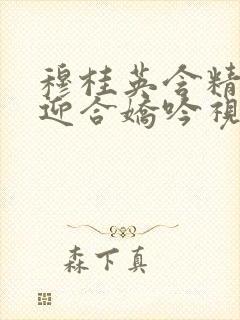 穆桂英含精
迎合娇吟视
森下真